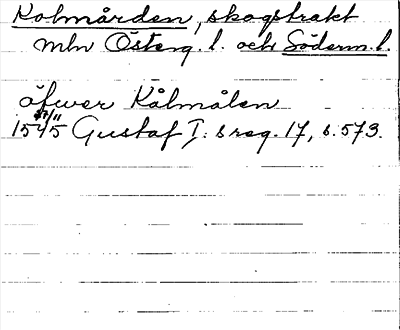 Kolmården, skogstrakt
mln Österg. l. och Söderm. l.
öfwer Kålmålen
1545 27/11 Gustaf I:s reg. 17, s. 573.